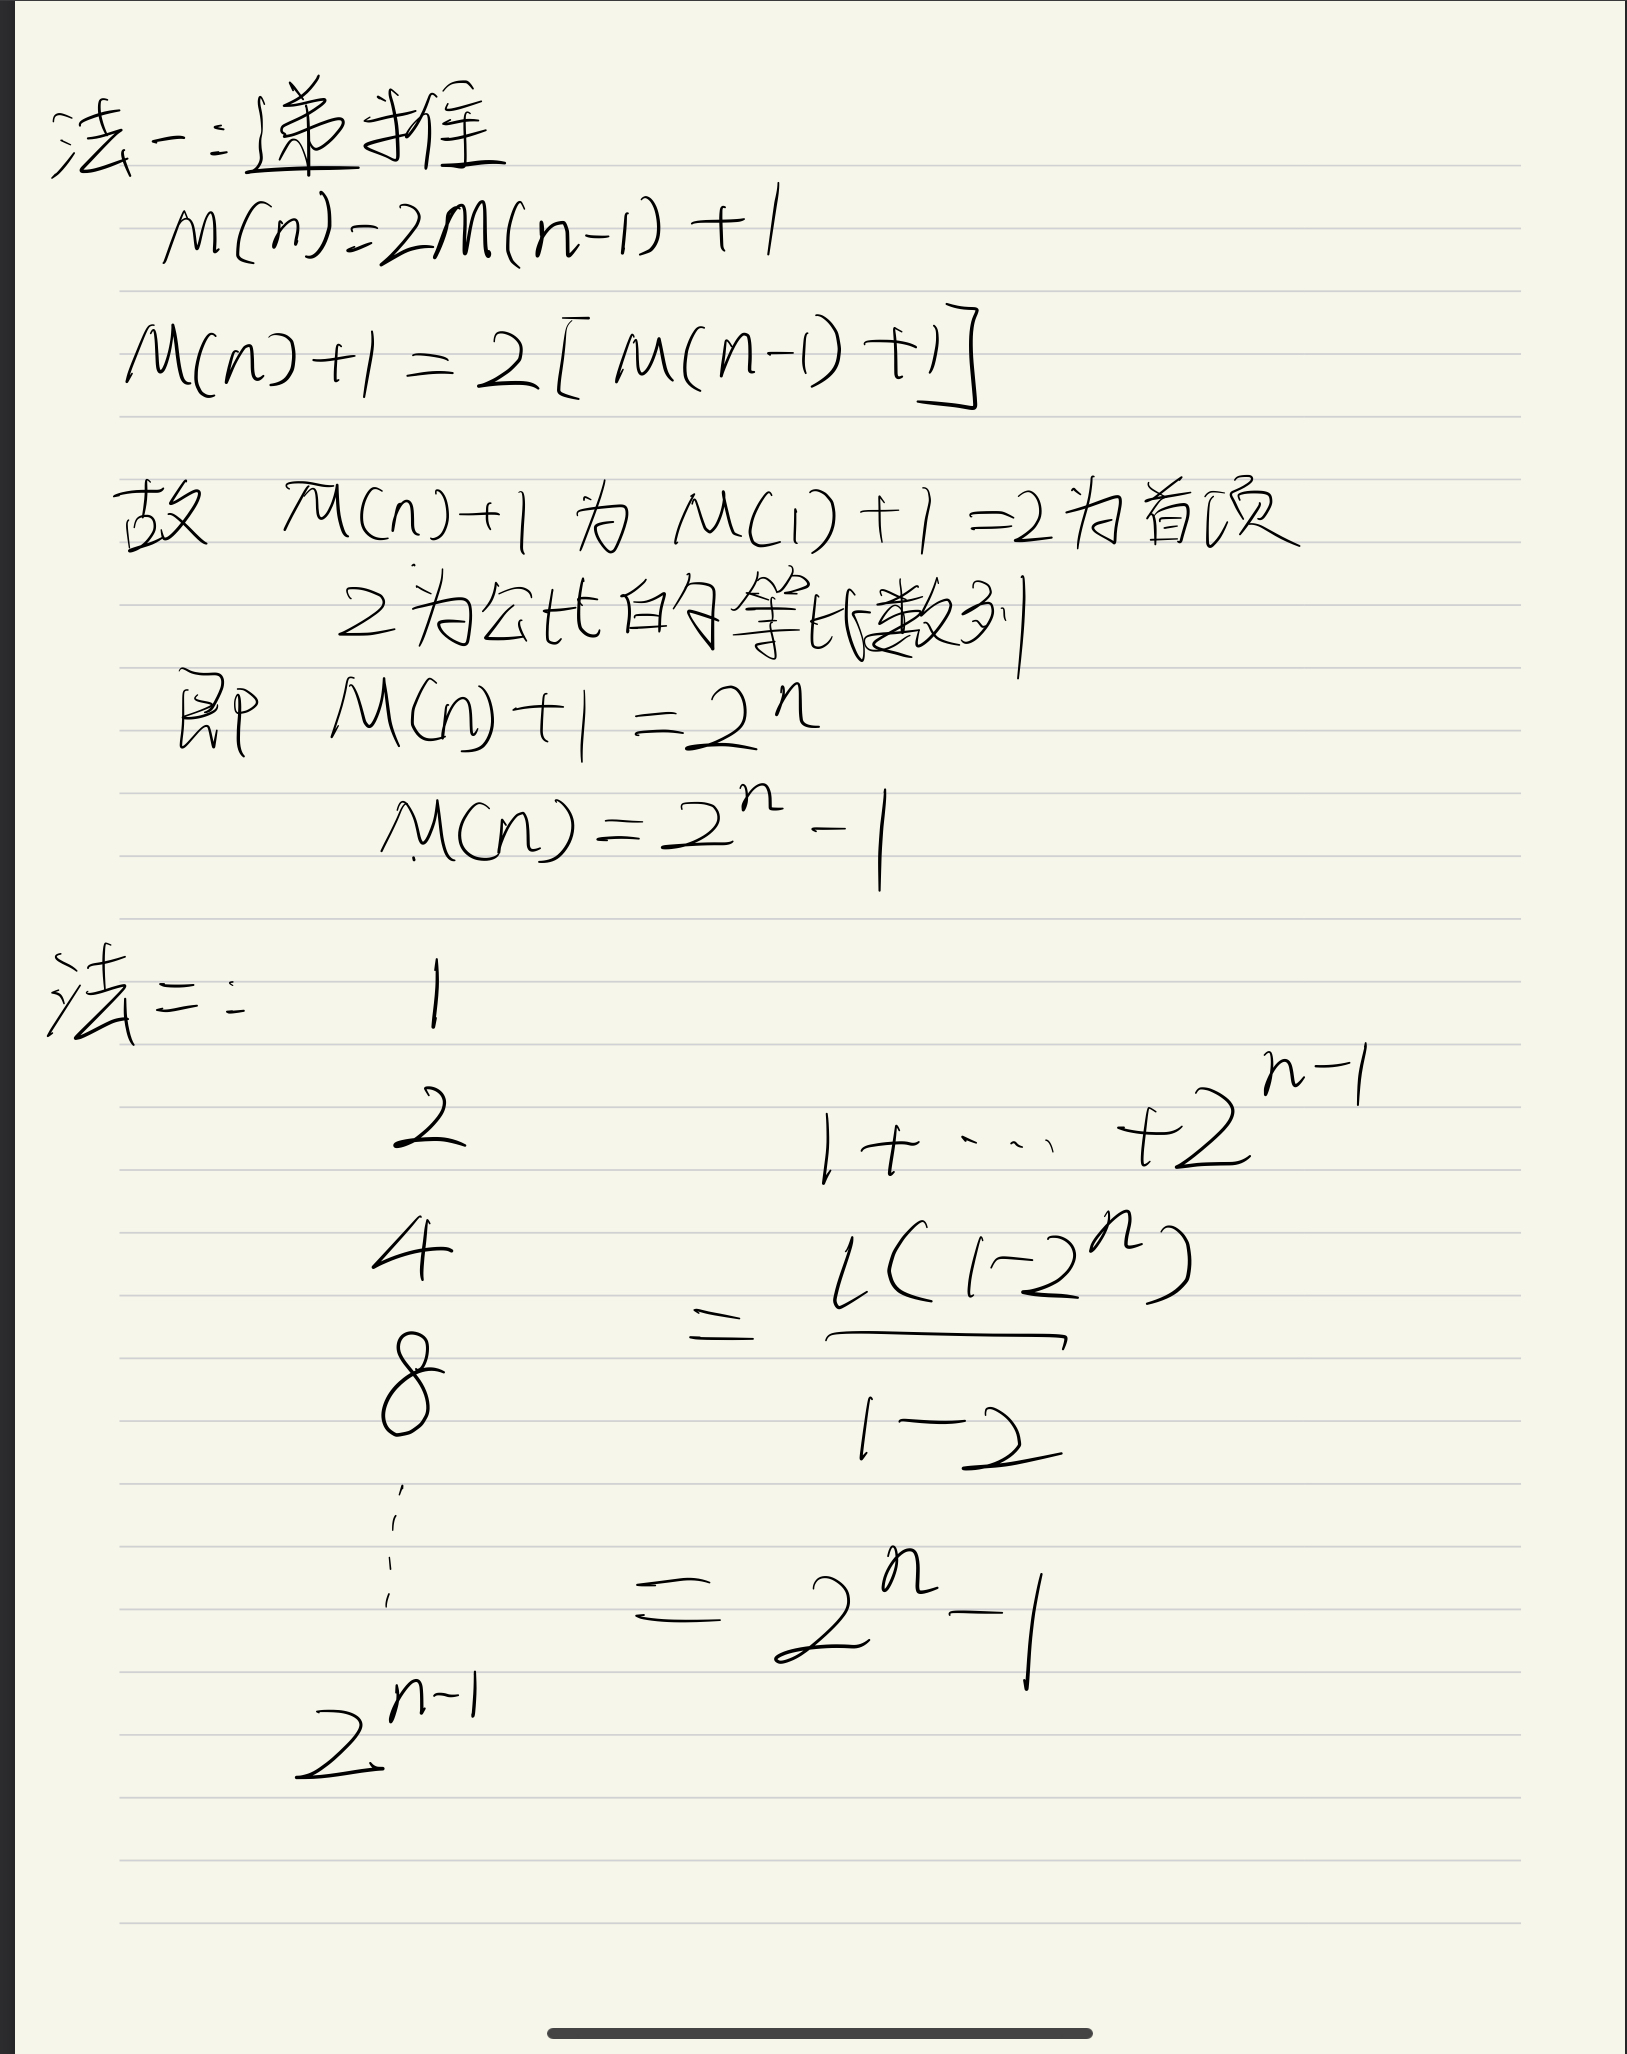 法一:递推
M(n)=2M(n-1)+1
M(n)+1=2[M(n-1)+1]
故 M(n)+1为 M(1)+1=2为首项
2为公比的等比数列
即 M(n)+1=2^n
M(n)=2^n-1
法二: 1
2
4
8
⋮
2^{n-1}
1+……+2^{n-1}
=\frac{1(1-2^n)}{1-2}
=2^n-1